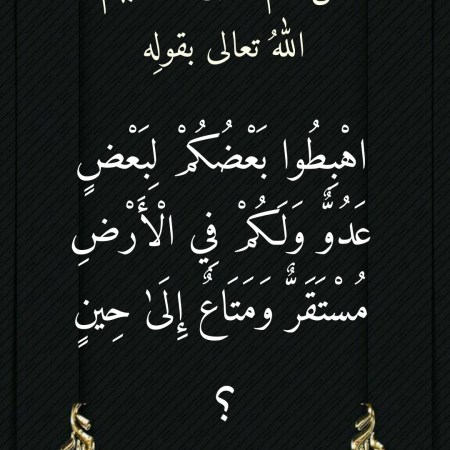 اللهُ تعالى بقولِه
اهْبِطُوا بَعْضُكُمْ لِبَعْضٍ
عَدُوٌّ وَلَكُمْ فِي الْأَرْضِ
مُسْتَقَرٌّ وَمَتَاعٌ إِلَىٰ حِينٍ
؟